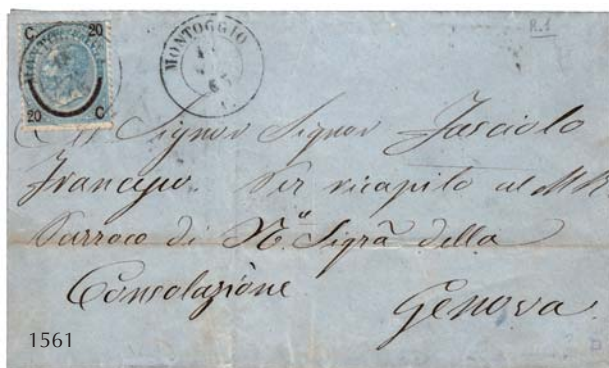 C 20
20 C
MONTOGGIO
65
R.1
Al Signor Signor Fasciolo
Francesco. Per ricapito al M R
Parroco di N.ª Sigrã della
Consolazione
Genova.
1561